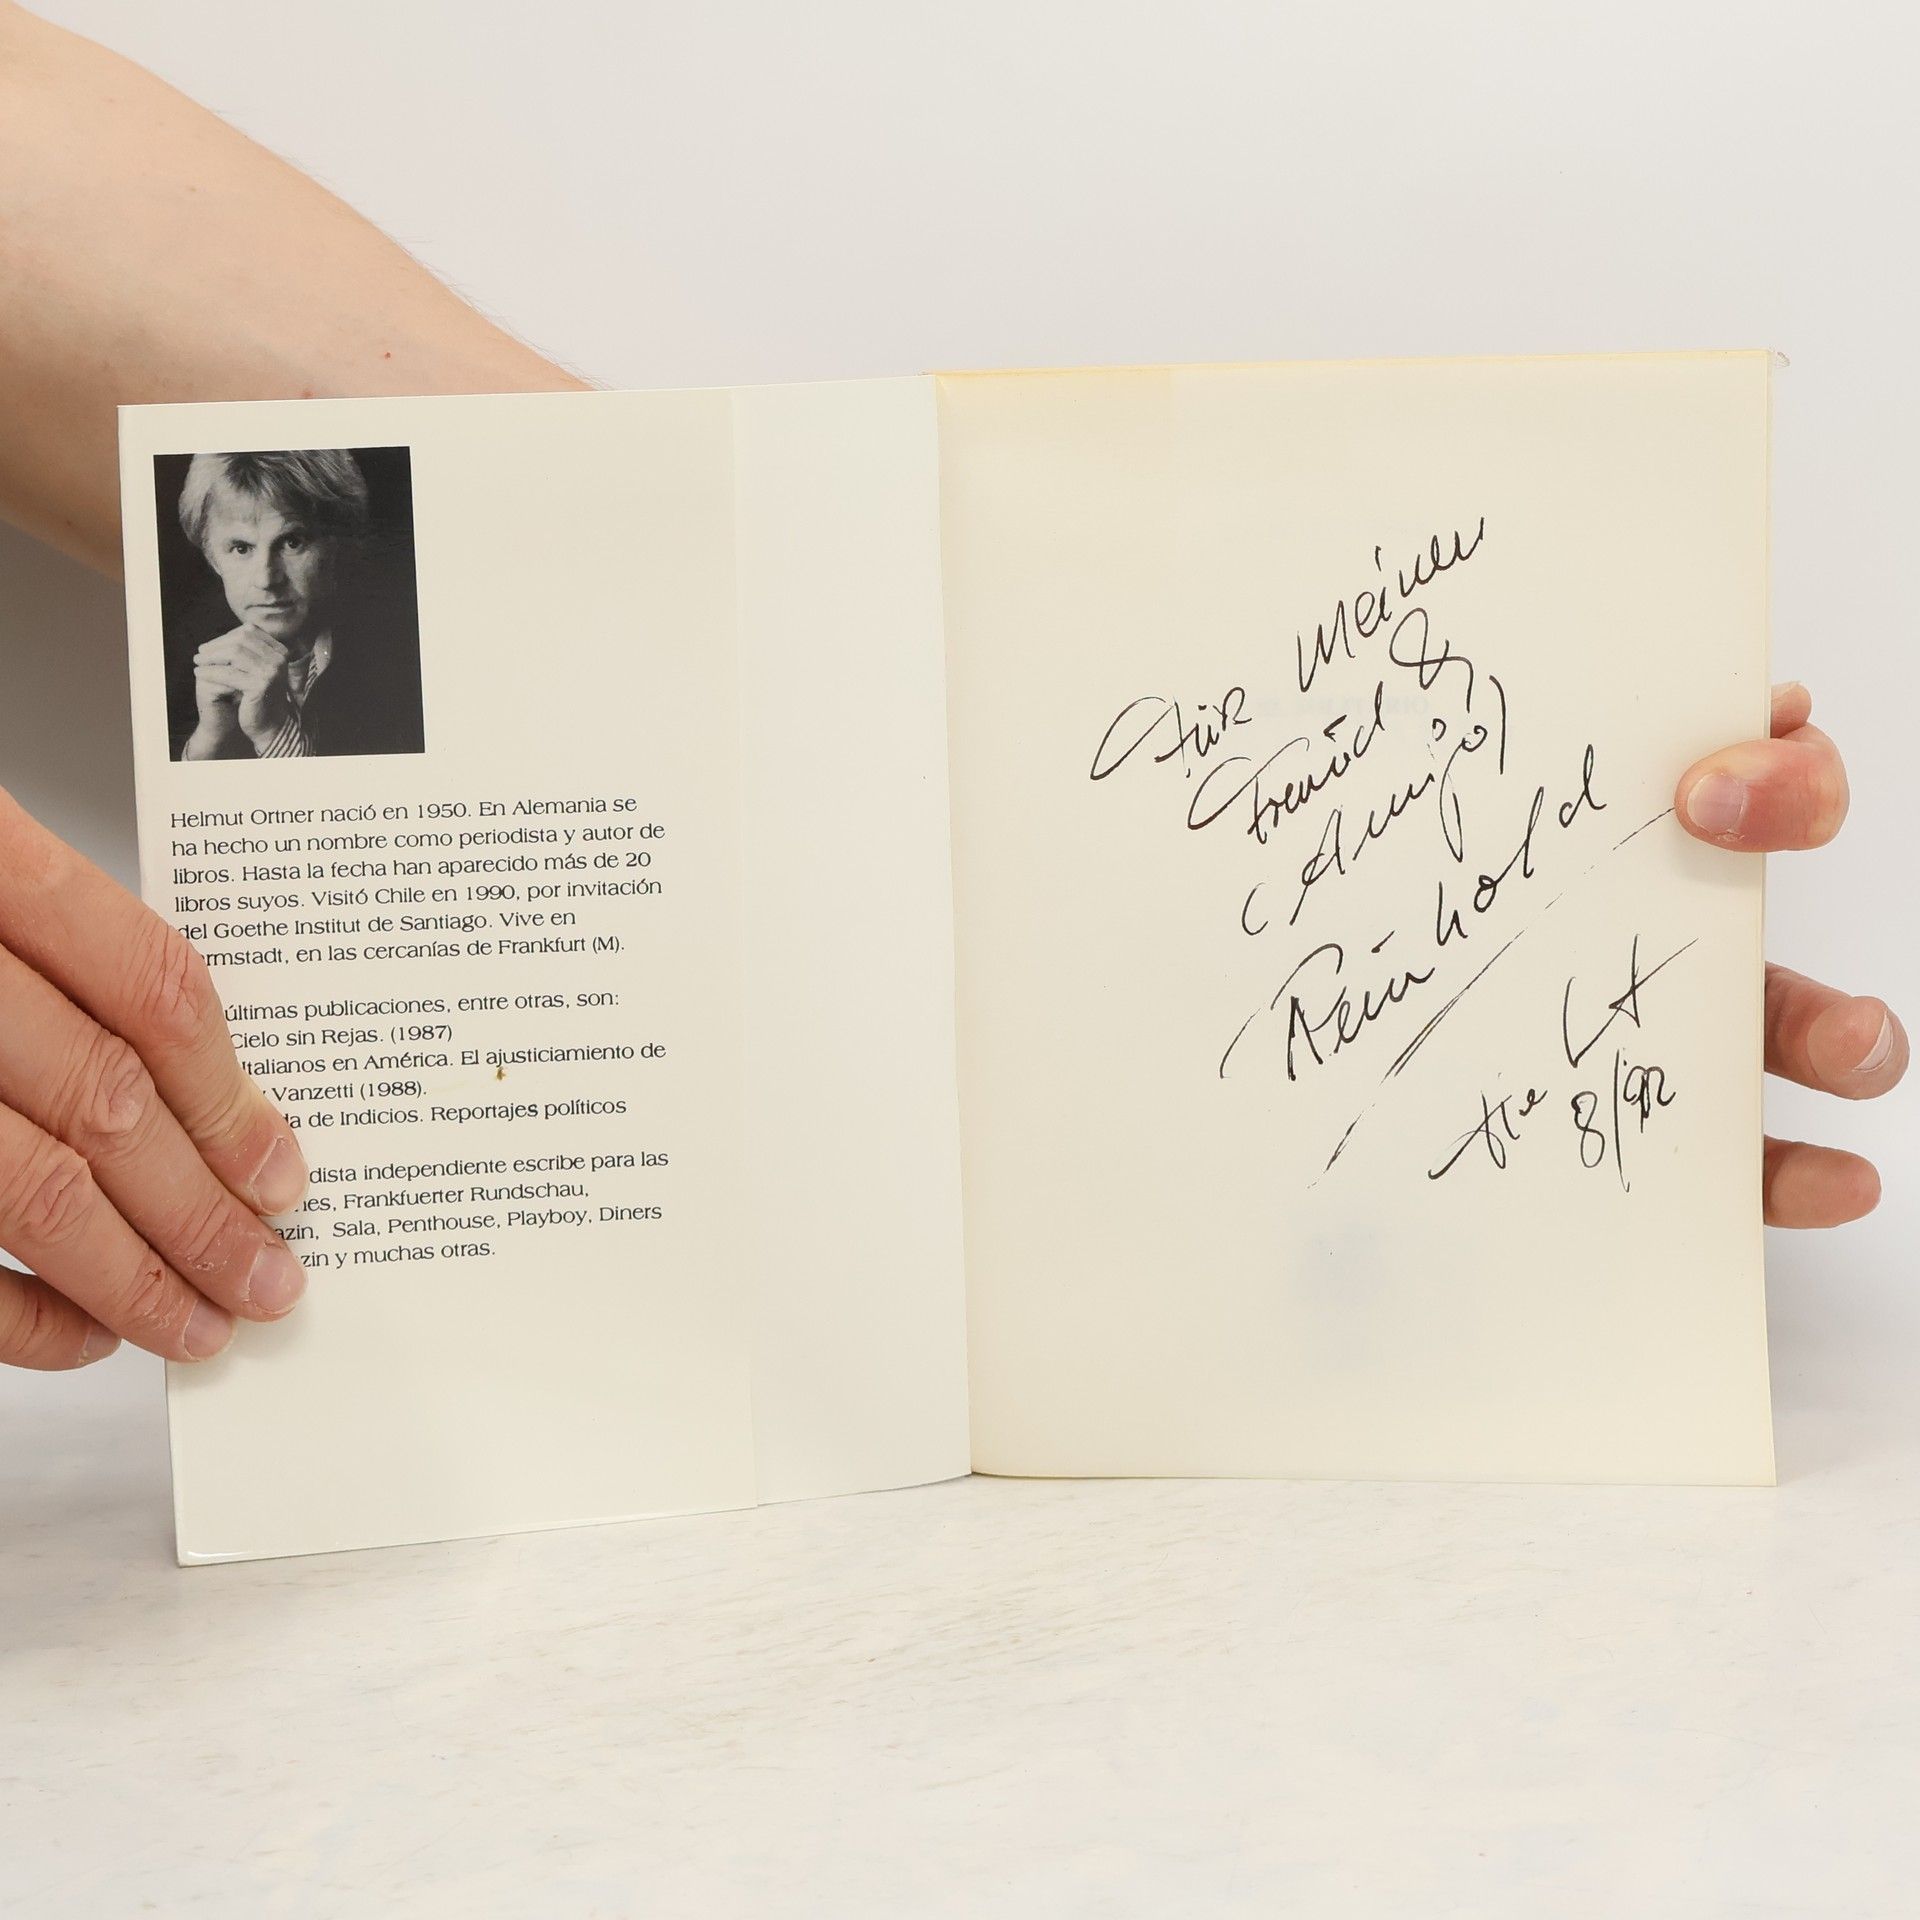 Helmut Ortner nació en 1950. En Alemania se
ha hecho un nombre como periodista y autor de
libros. Hasta la fecha han aparecido más de 20
libros suyos. Visitó Chile en 1990, por invitación
del Goethe Institut de Santiago. Vive en
rmstadt, en las cercanías de Frankfurt (M).
últimas publicaciones, entre otras, son:
Cielo sin Rejas. (1987)
Italianos en América. El ajusticiamiento de
y Vanzetti (1988).
da de Indicios. Reportajes políticos
dista independiente escribe para las
nes, Frankfuerter Rundschau,
azin, Sala, Penthouse, Playboy, Diners
zin y muchas otras.
Für Meinen
Freund &
(Amigo)
Reinhold
8/92